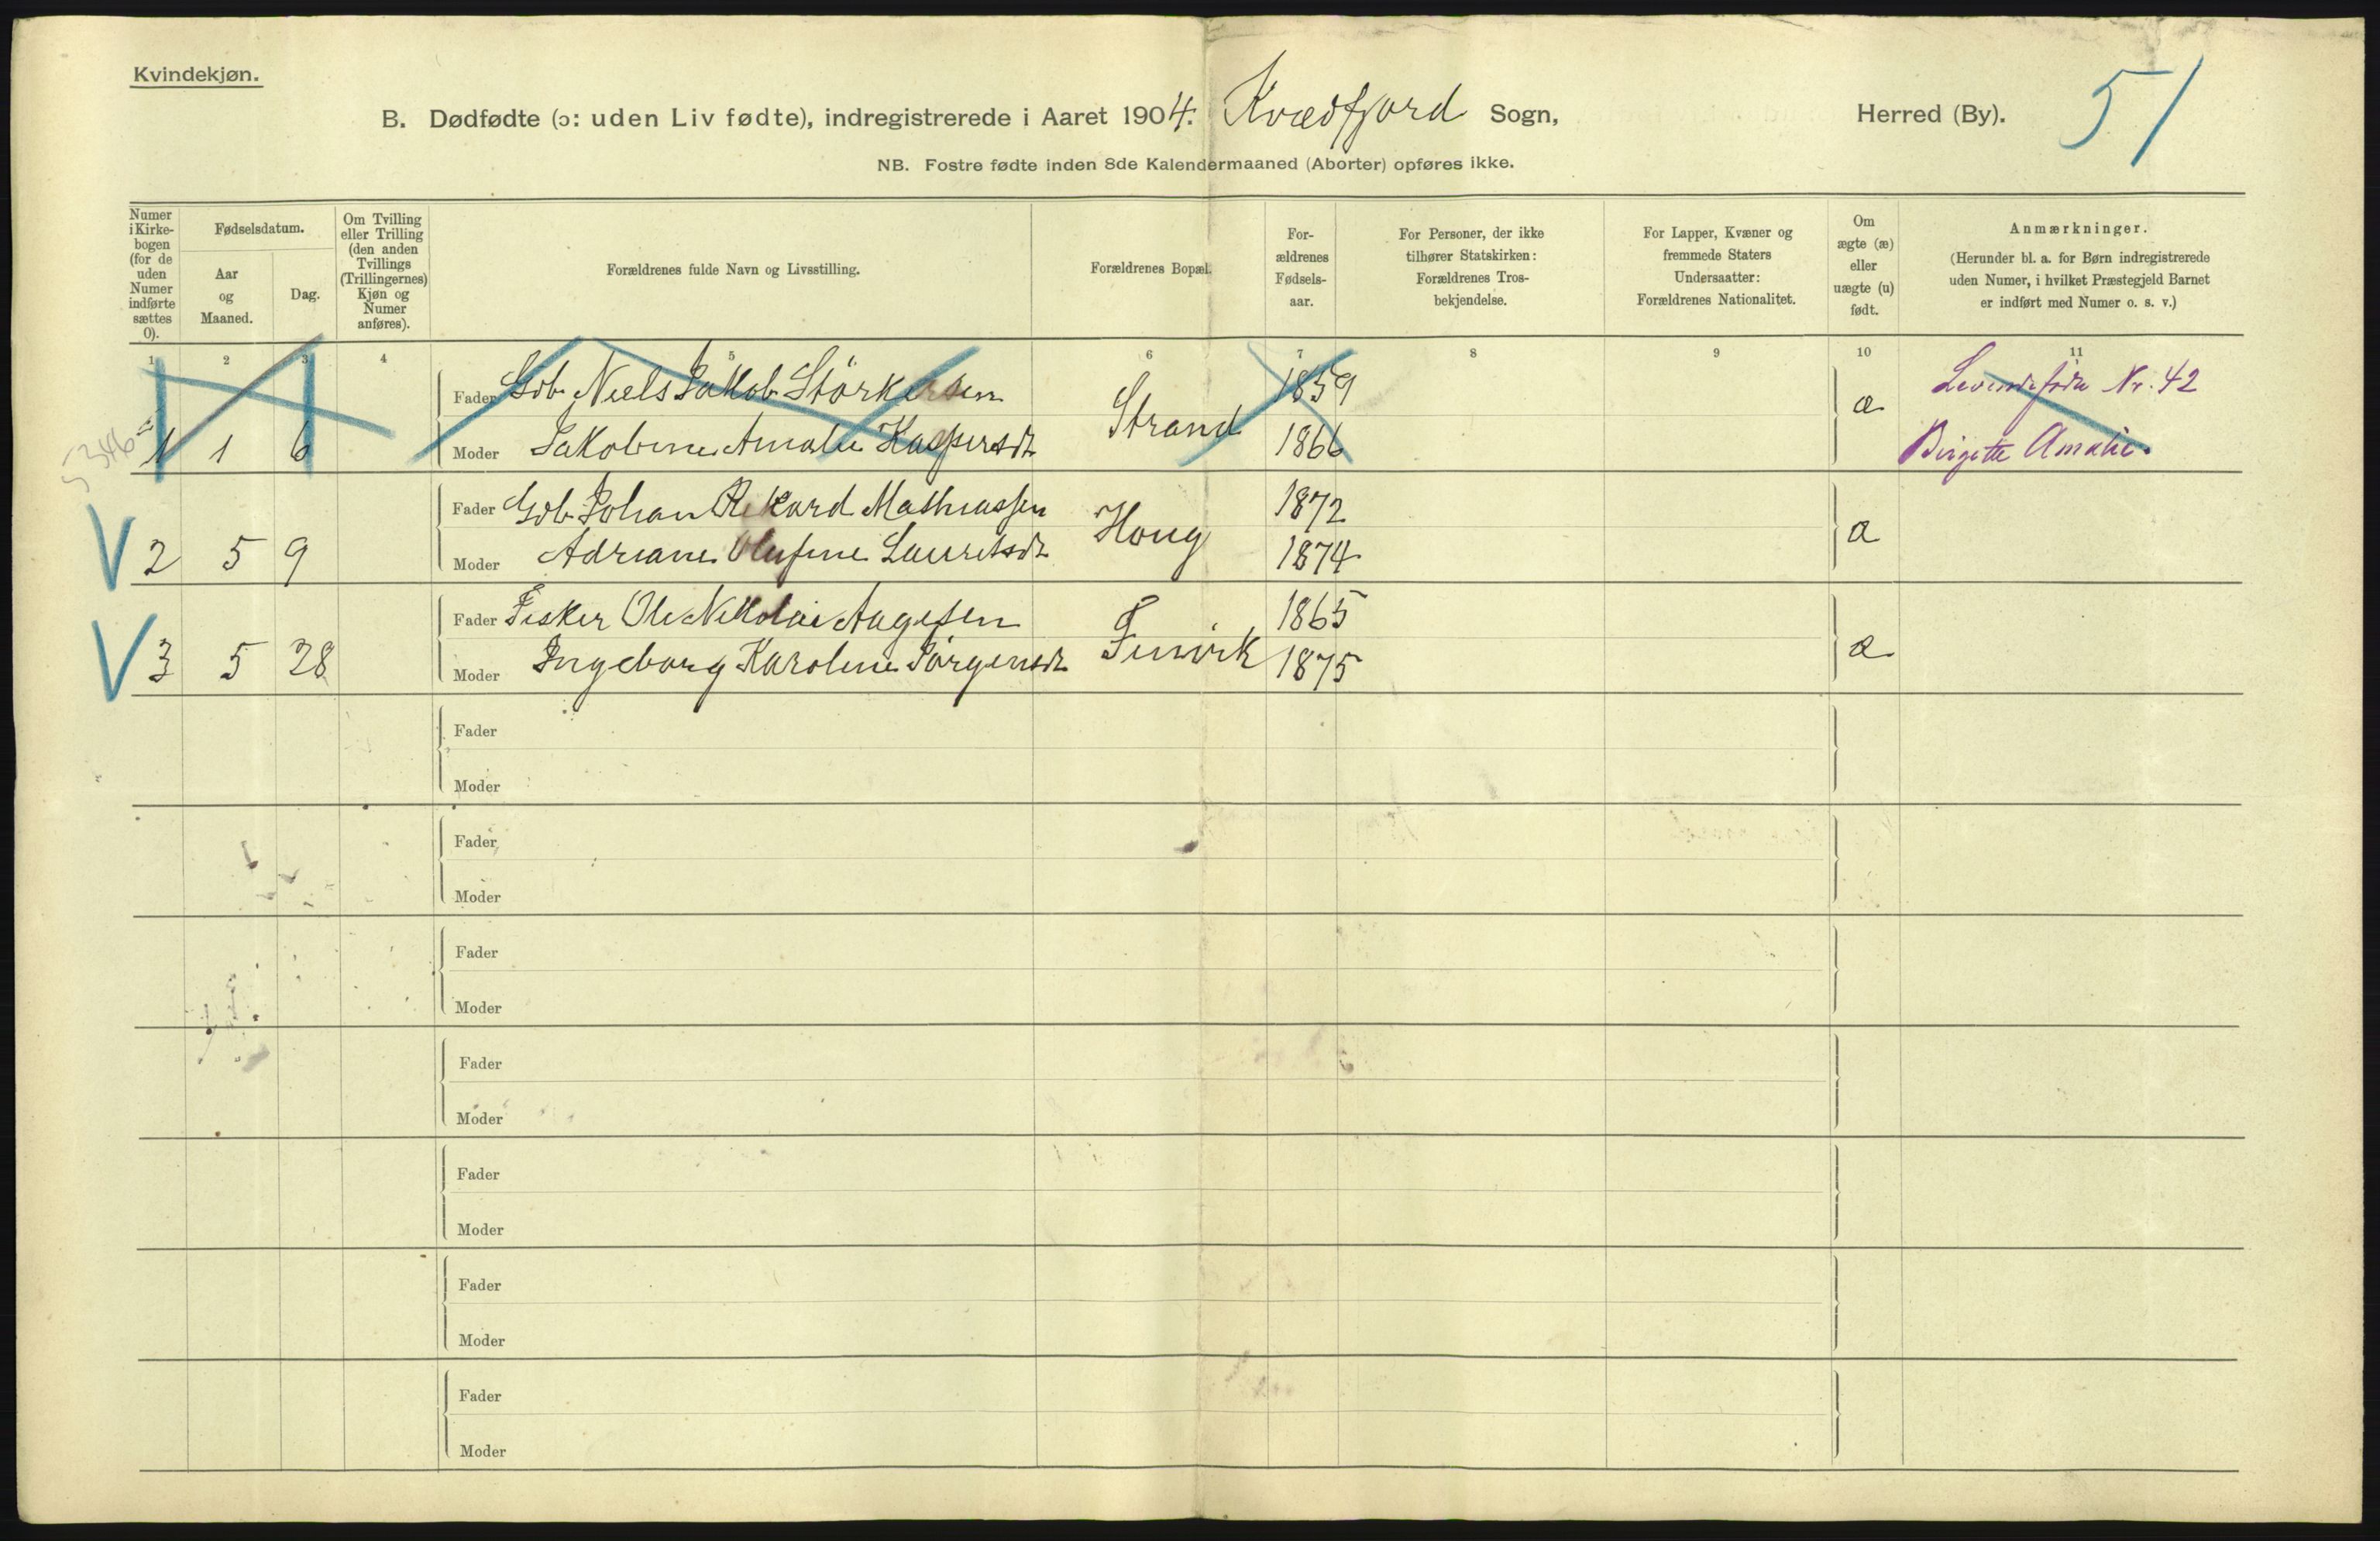 Kvindekjøn.
B. Dødfødte (ɔ: uden Liv fødte), indregistrerede i Aaret 1904. Kvædfjord Sogn, Herred (By).
51
NB. Fostre fødte inden 8de Kalendermaaned (Aborter) opføres ikke.
Numer i Kirke-bogen (for de uden Numer indførte sættes 0).
Fødselsdatum.
Aar og Maaned.
Dag.
Om Tvilling eller Trilling (den anden Tvillings (Trillingernes) Kjøn og Numer anføres).
Forældrenes fulde Navn og Livsstilling.
Forældrenes Bopæl.
For-ældrenes Fødsels-aar.
For Personer, der ikke tilhører Statskirken: Forældrenes Tros-bekjendelse.
For Lapper, Kvæner og fremmede Staters Undersaatter: Forældrenes Nationalitet.
Om ægte (æ) eller uægte (u) født.
Anmærkninger.
(Herunder bl. a. for Børn indregistrerede uden Numer, i hvilket Præstegjeld Barnet er indført med Numer o. s. v.)
1 2 3 4 5 6 7 8 9 10 11
Fader Gdb. Niels Jakob Störkersen 1859 Levendefødte Nr. 42
1 1 6 Moder Jakobine Amalie Kaspersdr Strand 1866 æ Birgitte Amalie.
Fader Gdb. Johan Rikard Mathiassen 1872
2 5 9 Moder Adriane Olufine Lauritsdr Houg 1874 æ
Fader Fisker Ole Nikolai Aagesen 1865
3 5 28 Moder Ingeborg Karoline Jörgensdr 1875 æ
Fader
Moder
Fader
Moder
Fader
Moder
Fader
Moder
Fader
Moder
Fader
Moder
Fader
Moder